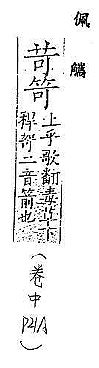 佩觿
苛笴
上乎歌翻毒草下
稈哿二音箭也
(卷中
P21A)